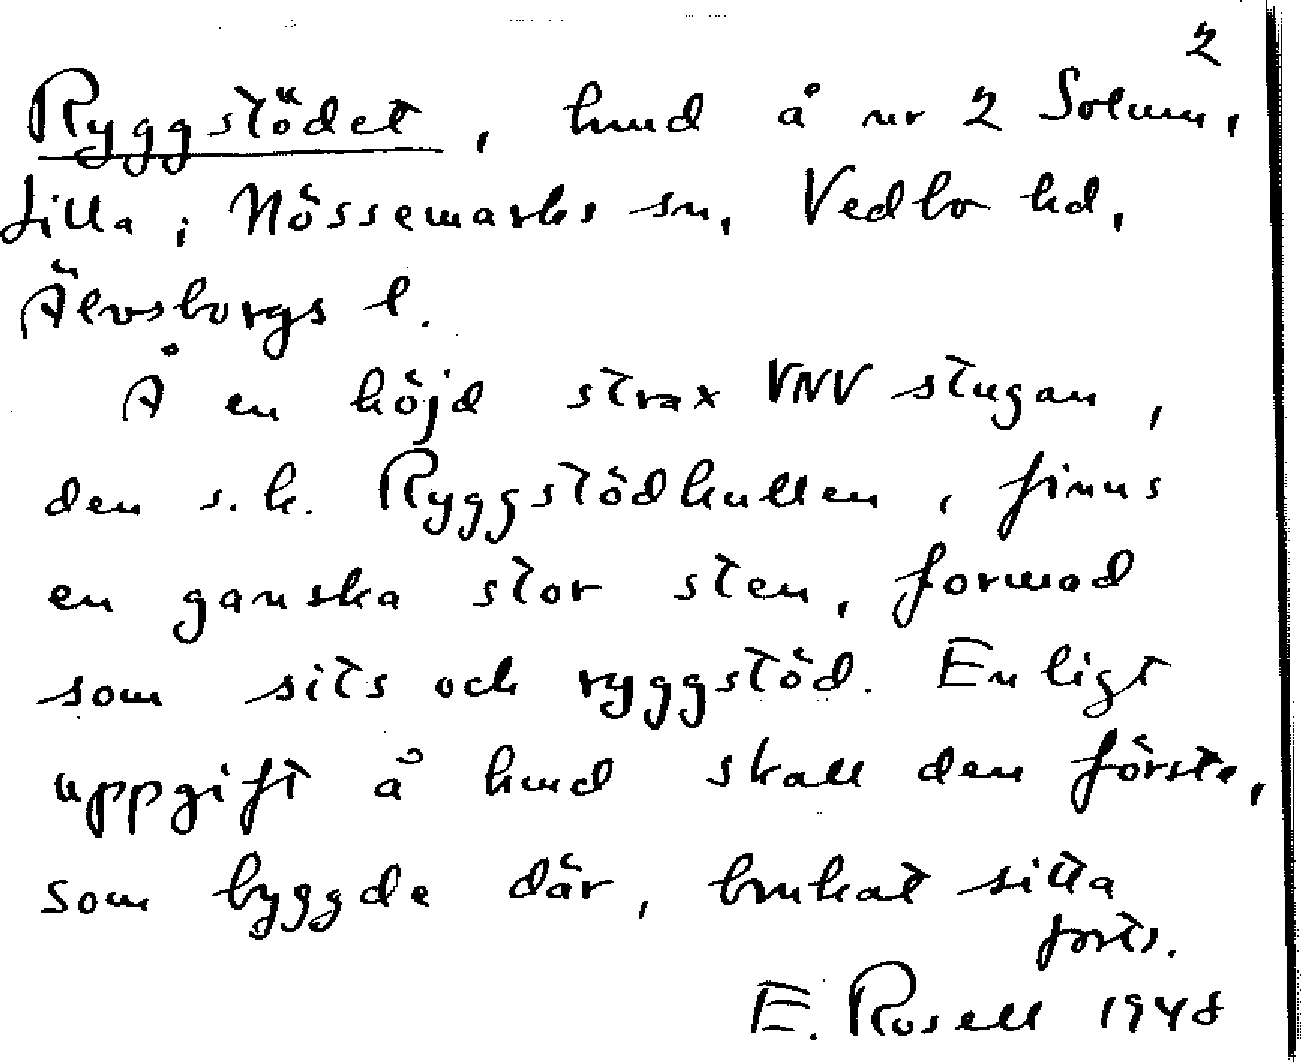 2
Ryggstödet, hmd å nr 2 Solum,
Lilla; Nössemarks sn, Vedbo hd,
Älvsborgs l.
Å en höjd strax VNV stugan,
den s.k. Ryggstödkullen, finns
en ganska stor sten, formad
som sits och ryggstöd. Enligt
uppgift å hmd skall den förste,
som byggde där, brukat sitta
forts.
E. Rosell 1948